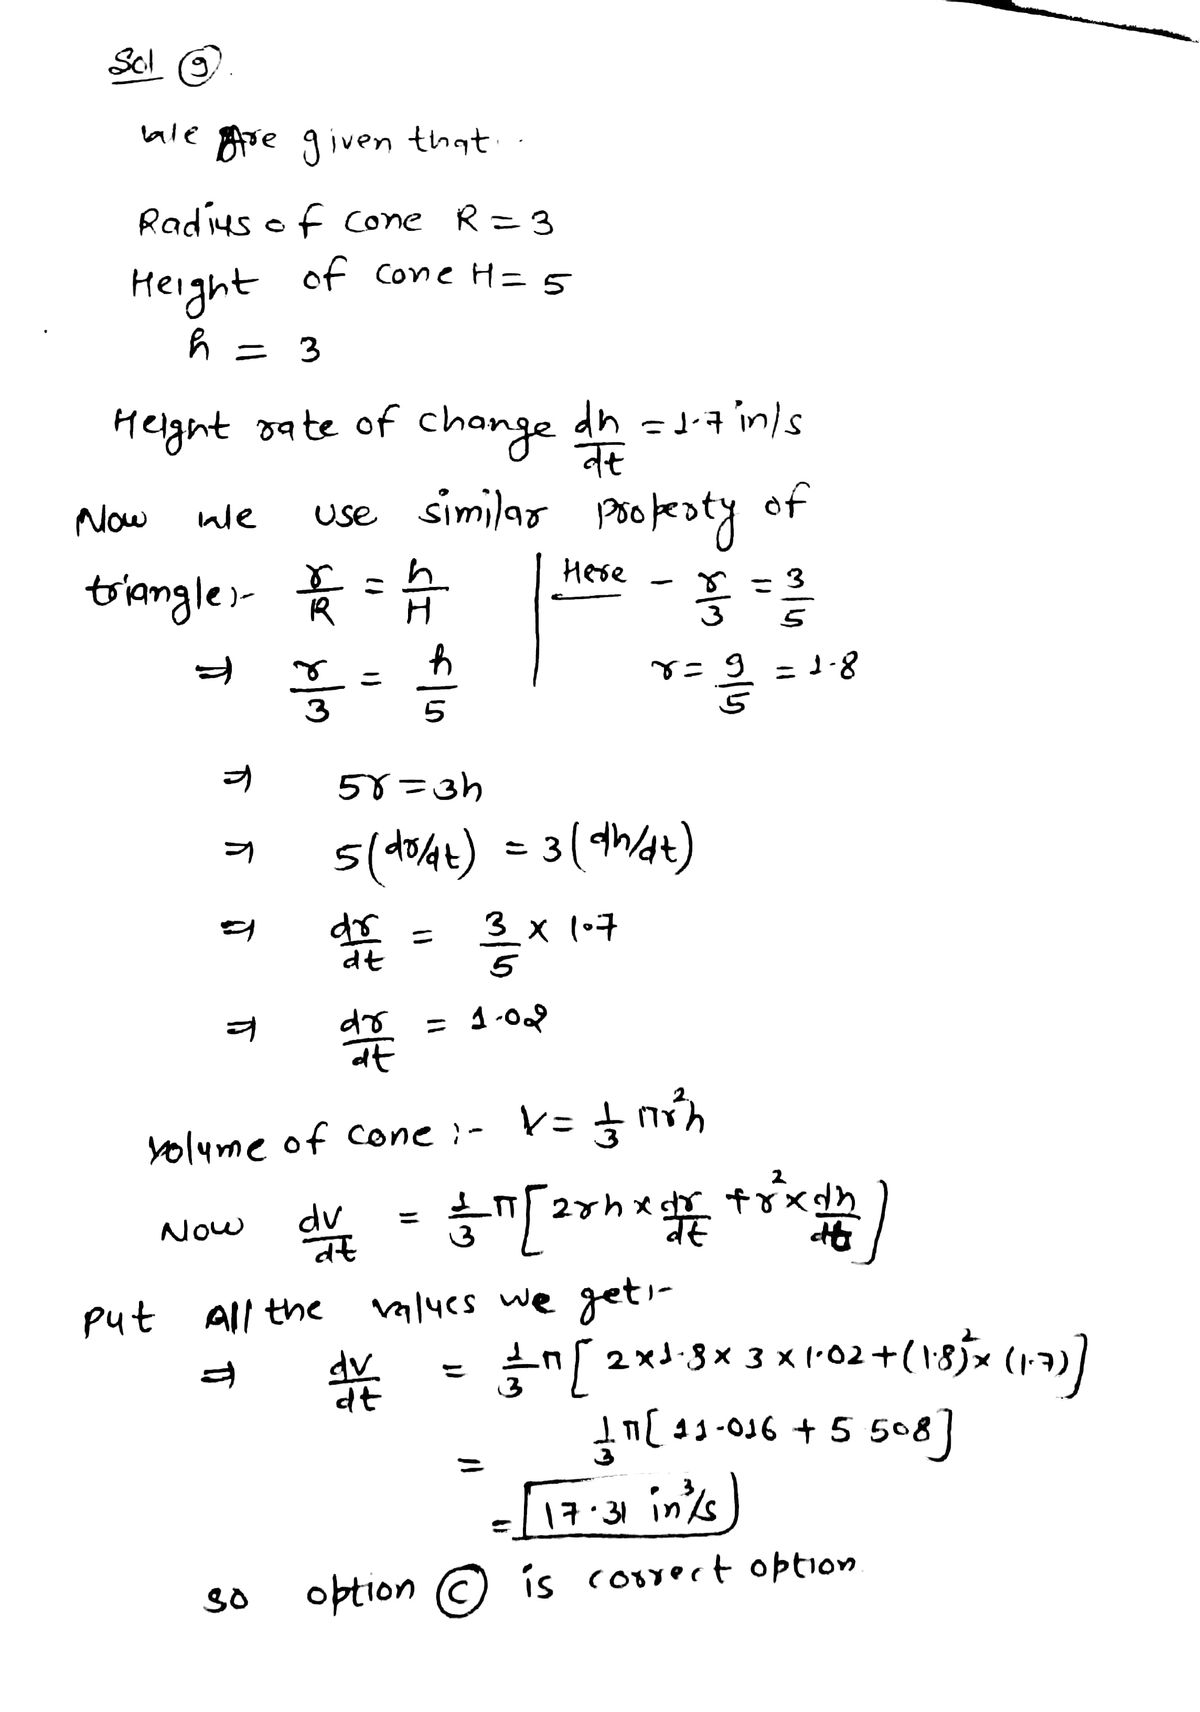 Sol ⑨.
We Are given that..
Radius of cone R = 3
Height of cone H = 5
h = 3
Height rate of change dh/dt = 1.7 in/s
Now we use similar property of
triangle:- r/R = h/H | Here - r/3 = 3/5
⇒ r/3 = h/5 | r = 9/5 = 1.8
⇒ 5r = 3h
⇒ 5(dr/dt) = 3(dh/dt)
⇒ dr/dt = 3/5 × 1.7
⇒ dr/dt = 1.02
Volume of cone :- V = 1/3 πr²h
Now dv/dt = 1/3 π[2rh × dr/dt + r² × dh/dt]
Put All the values we get:-
⇒ dv/dt = 1/3 π[2×1.8×3×1.02+(1.8)²×(1.7)]
= 1/3 π[11.016 + 5.508]
= 17.31 in³/s
so option Ⓒ is correct option